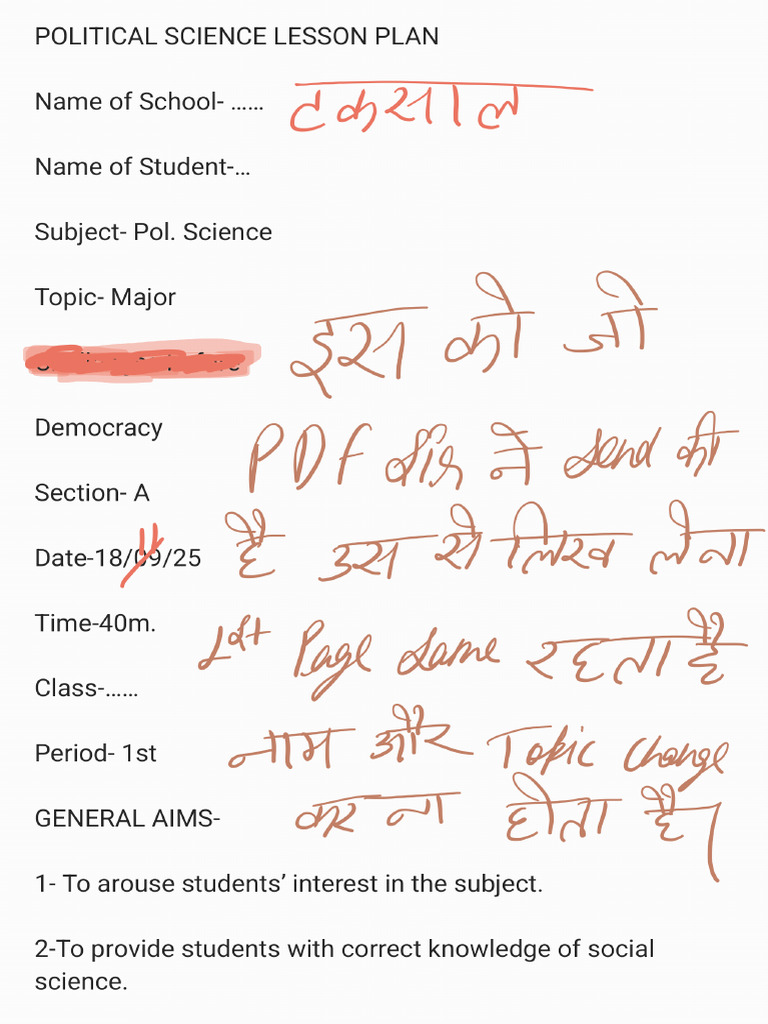 POLITICAL SCIENCE LESSON PLAN
Name of School- ...... टकसाल
Name of Student-...
Subject- Pol. Science
Topic- Major
इस को जो
Democracy
PDF सर ने send की
Section- A
Date-18/09/25 है उस से लिख लेना
Time-40m.
1st Page same रहता है
Class-......
Period- 1st नाम और Topic change
GENERAL AIMS- करना होता है।
1- To arouse students’ interest in the subject.
2-To provide students with correct knowledge of social
science.